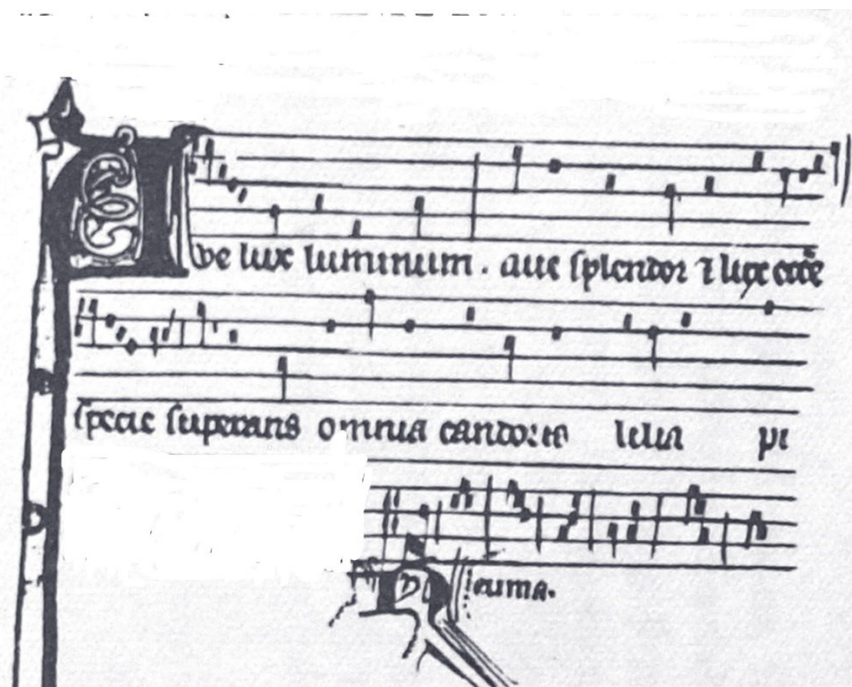 Ave lux luminum . aue splendor ⁊ lux eccle̅
specie superans omnia candoris lilia pi
Neuma.